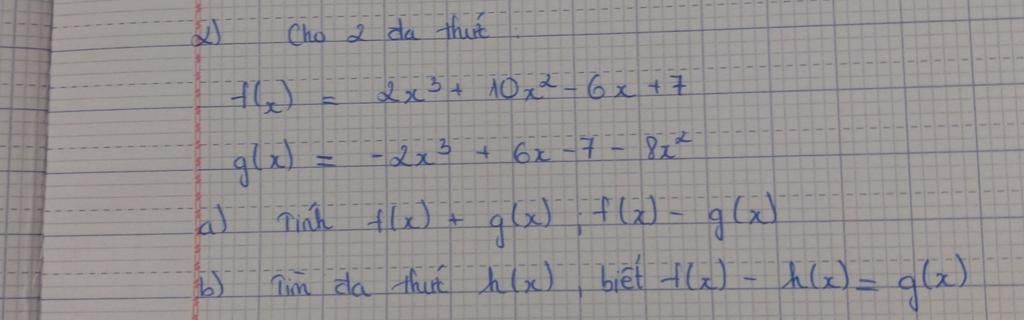 2) Cho 2 đa thức.
f(x) = 2x³ + 10x² - 6x + 7
g(x) = -2x³ + 6x - 7 - 8x²
a) Tính f(x) + g(x), f(x) - g(x)
b) Tìm đa thức h(x), biết f(x) - h(x) = g(x)